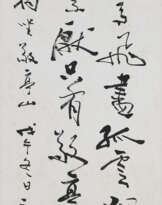 高飛盡孤雲
不厭只有敬亭
獨坐敬亭山 戊午冬日